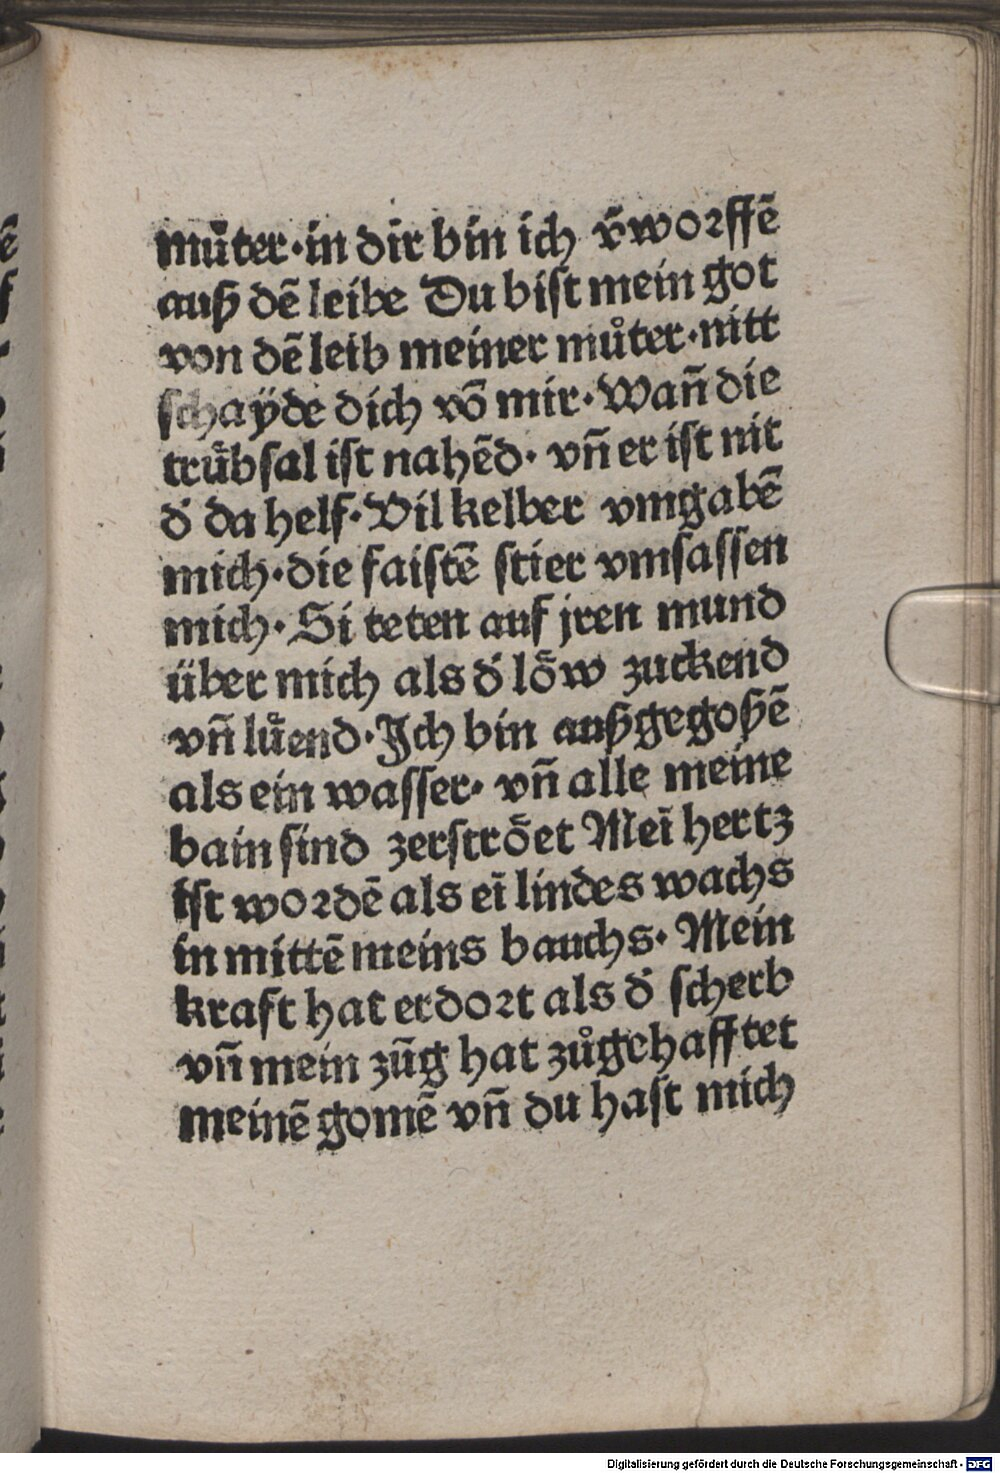 muͦter·in dir bin ich v̄worffē
auß dē leibe Du bist mein got
von dē leib meiner muͦter·nitt
schaÿde dich vō mir·Wañ die
truͤbsal ist nahēd· vñ er ist nit
d̕ da helf·Vil kelber vmgabē
mich·die faistē stier vmsassen
mich·Si teten auf jren mund
über mich als d̕ loͤw zuckend
vñ luͤend·Ich bin außgegoßē
als ein wasser· vñ alle meine
bain sind zerstroͤet Mei͂ hertz
ist wordē als ei͂ lindes wachs
in mittē meins bauchs· Mein
kraft hat erdort als d̕ scherb
vñ mein zūg hat zuͦgehafftet
meinē gomē vñ du hast mich
Digitalisierung gefördert durch die Deutsche Forschungsgemeinschaft - DFG